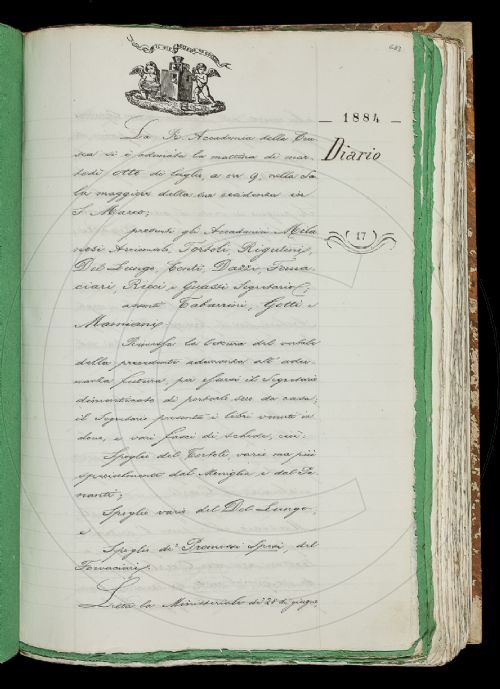 683
— 1884 —
Diario
17
La R. Accademia della Cru
sca si è adunata la mattina di mar
tedì otto di luglio, a ore 9, nella Sa
la maggiore della sua residenza in
S. Marco;
presenti gli Accademici Mila
nesi Arciconsolo, Tortoli, Rigutini,
Del Lungo, Conti, Dazzi, Forna
ciari, Ricci e Guasti Segretario;
assenti Tabarrini, Gotti e
Mamiani.
Rimessa la lettura del verbale
della precedente adunanza all' adu
nanza futura, per essersi il Segretario
dimenticato di portarlo seco da casa;
il Segretario presenta i libri venuti in
dono, e vari fasci di schede, cioè:
Spogli del Tortoli, varii ma più
specialmente dal Meniglia e dal Fa
nanti;
Spoglio vario del Del Lungo;
e
Spoglio de' Promessi Sposi, del
Fornaciari.
Letta la Ministeriale de' 28 di giugno,